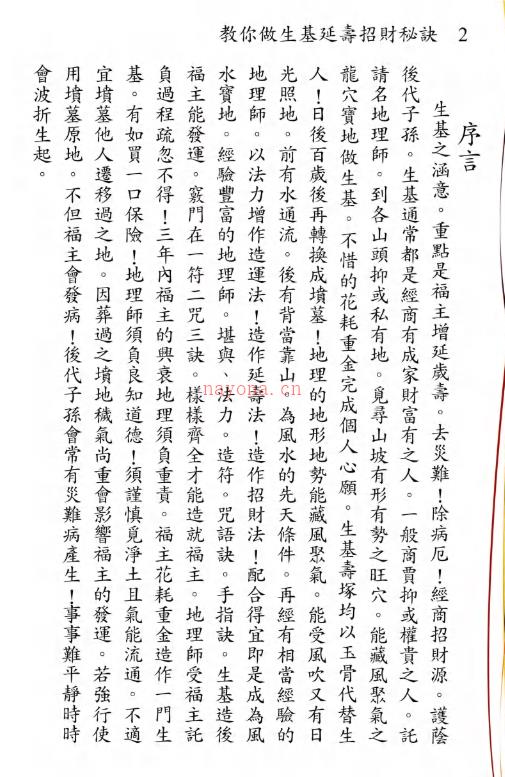 教你做生基延壽招財秘訣 2
序言
生基之涵意。重點是福主增延歲壽。去災難！除病厄！經商招財源。護蔭
後代子孫。生基通常都是經商有成家財富有之人。一般商賈抑或權貴之人。託
請名地理師。到各山頭抑或私有地。覓尋山坡有形有勢之旺穴。能藏風聚氣之
龍穴寶地做生基。不惜的花耗重金完成個人心願。生基壽塚均以玉骨代替生
人！日後百歲後再轉換成墳墓！地理的地形地勢能藏風聚氣。能受風吹又有日
光照地。前有水通流。後有背當靠山。為風水的先天條件。再經有相當經驗的
地理師。以法力增作造運法！造作延壽法！造作招財法！配合得宜即是成為風
水寶地。經驗豐富的地理師。堪與、法力。造符。咒語訣。手指訣。生基造後
福主能發運。竅門在一符二咒三訣。樣樣齊全才能造就福主。地理師受福主託
負過程疏忽不得！三年內福主的興衰地理須負重責。福主花耗重金造作一門生
基。有如買一口保險！地理師須負良知道德！須謹慎覓淨土且氣能流通。不適
宜墳墓他人遷移過之地。因葬過之墳地穢氣尚重會影響福主的發運。若強行使
用墳墓原地。不但福主會發病！後代子孫會常有災難病產生！事事難平靜時時
會波折生起。
nayona.cn